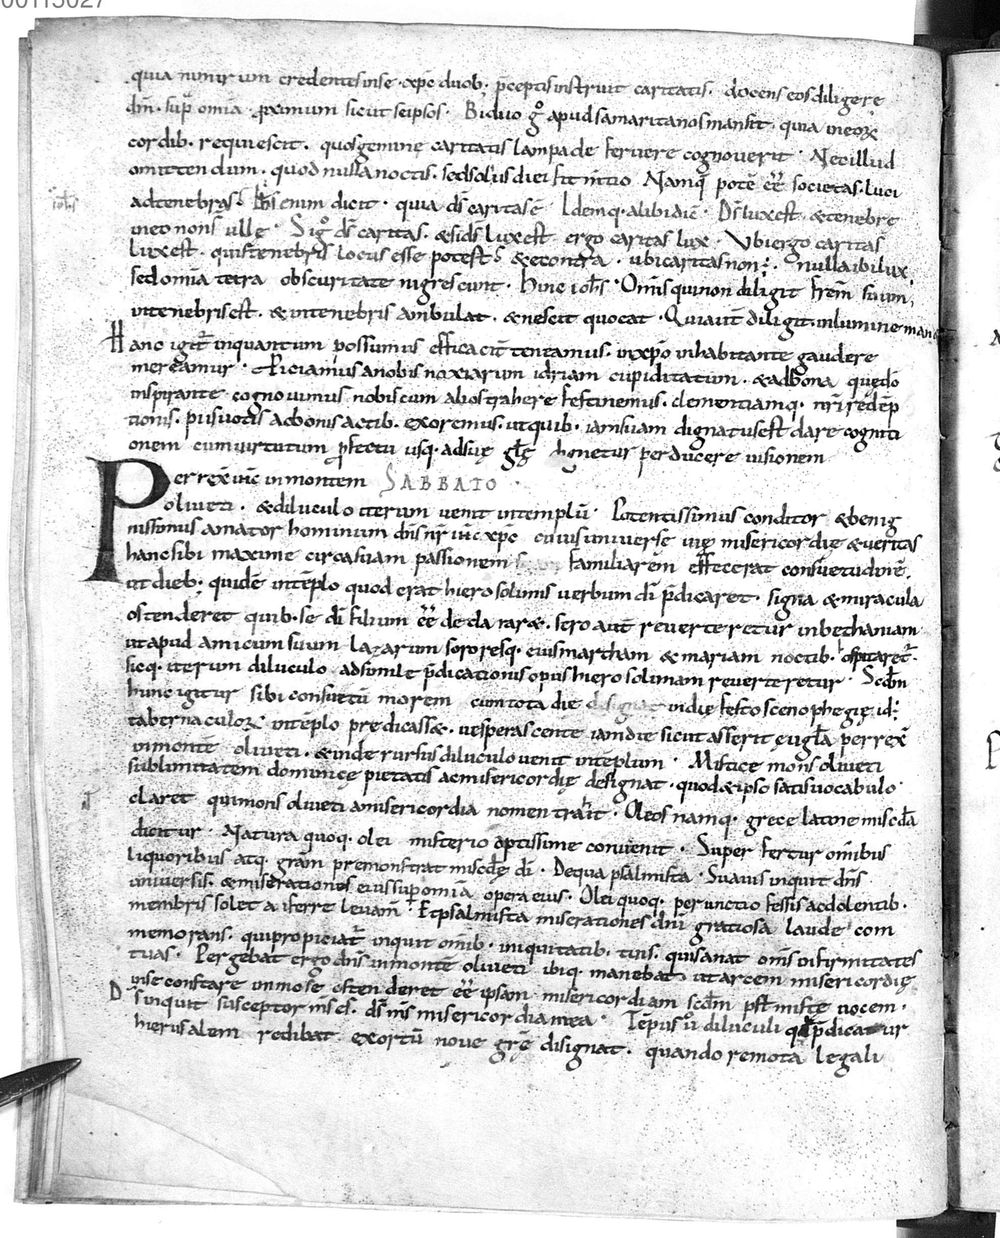 00113027
quia nimirum credentes in se xp̄c duob; p̄ceptis instruit caritatis. docens eos diligere
dm̄. sup̄ omīa. p̱ximum sicut se ipsos. Biduo g̊ apud samaritanos mansit. quia in eoꝝ
cordib. requiescit. quos geminę caritatis lampade fervere cognoverit. Nec illud
omittendum. quod nulla noctis. sed solius diei fit m̄tio. Namq; potē eē societas. luci
ad tenebras. enim dicit. quia ds̄ caritas ē. Idemq. alibi dic̄. Ds̄ lux est. & tenebrę
ioh̄s
in eo non s̄ ullę. Si g̊ ds̄ caritas. & si ds̄ lux est. ergo caritas lux. Ubi ergo caritas
lux est. quis tenebris locus esse potest. & econtra. ubi caritas non ē. nulla ibi lux
sed omīa tetra obscuritate nigrescunt. Hinc ioh̄s. Om̄is qui non diligit frēm suum,
in tenebris est. & in tenebris ambulat. & nescit quo eat. Qui aut̄ diligit. in lumine man&
Hanc igit̄ in quantum possumus efficacit̄ teneamus. in xp̄o inhabitante gaudere
mereamur. Riciamus a nobis noxiarum idriam cupiditatum. & ad bona quę do
inspirante cognovimus nobiscum alios trahere festinemus. clementiamq. nr̄i redēp
tionis. piis votis ac bonis actib. exoremus. ut quib. iam suam dignatus est dare cogniti
onem cum virtutum p̱fectu usq. ad suę gl̄ę dignetur perducere visionem
Perrex̄ ih̄c in montem SABBATO
oliveti. & diluculo iterum venit in templū. Potentissimus conditor & benig
nissimus amator hominum dn̄s nr̄ ih̄c xp̄c cuius universę vię misericordię & veritas
hanc sibi maxime circa suam passionem familiarēm effecerat consuetudinē,
ut dieb; quidē in tēplo quod erat hierosolimis verbum dī p̄dicaret. signa & miracula
ostenderet quib. se dī filium eē declararæ. sero aut̄ reverteretur in bethaniam
ut apud amicum suum lazarum sororesq. eius martham & mariam noctib. ospitaret̄.
sicq. iterum diluculo ad simile p̄dicationis opus hierosolimam reverteretur. Scdm̄
hunc igitur sibi consuetū morem cum tota die in die festo scenophegię id;
tabernaculoꝝ in tēplo predicassæ. vesperascente iam die sicut asserit eu͞gla perrex̄
in montē oliveti. & inde rursus diluculo venit in tēplum. Mistice mons oliveti
sublimitatem dominicę pietatis ac misericordię designat. quod & ipso satis vocabulo
claret qui mons oliveti a misericordia nomen trah̄it. Oleos namq. grece latine mis̄cda
dicitur. Natura quoq. olei misterio aptissime convenit. Super fertur om̄ibus
liquoribus atq. grām premonstrat mis̄cdę dī. De qua psalmista. Suavis inquit dn̄s
universis. & miserationes eius sup̱ omia opera eius. Olei quoq. perunctio fessis ac dolentib.
membris solet afferre levam̄. Et psalmista miserationes dn̄i gratiosa laude com
memorans. qui propiciat̄ inquit om̄ib. iniquitatib. tuis. qui sanat om̄s infirmitates
tuas. Pergebat ergo dn̄s in montē oliveti ibiq. manebat. ut arcem misericordię
in se constare in mose ostenderet eē ipsam misericordiam scdm̄ psl̄mistę vocem.
Ds̄ inquit susceptor m̄s es. ds̄ m̄s misericordia mea. Tēpus ū diluculi q̄ p̄dicatur
hierusalem redibat. exortū novę grę̄ disignat. quando remota legali